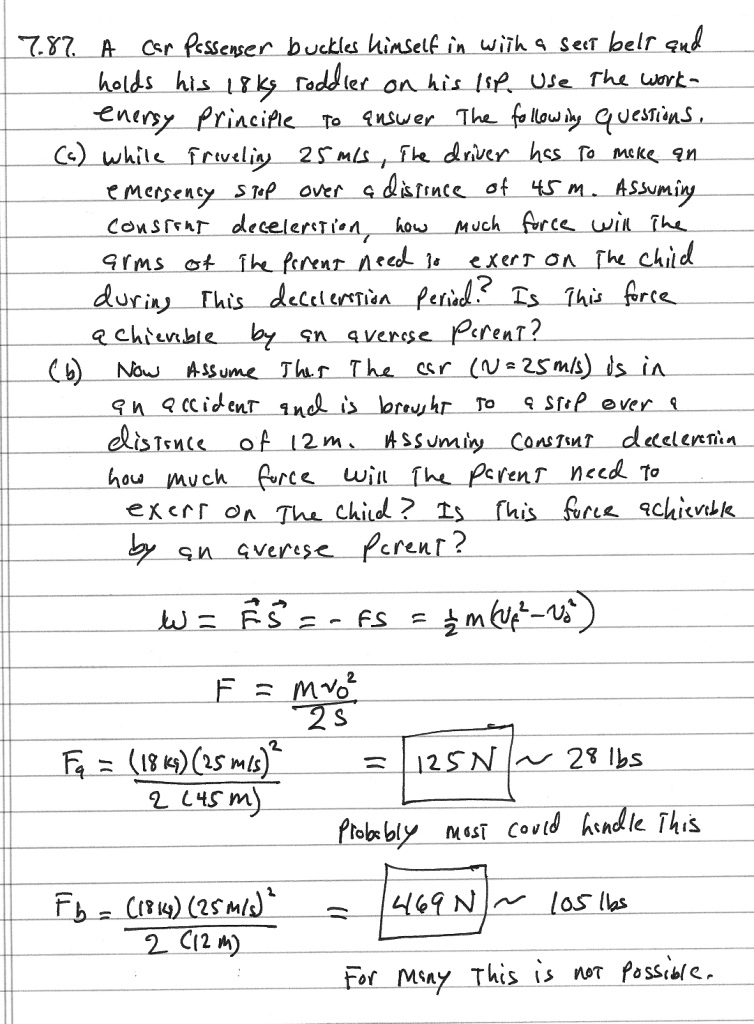 7.87. A car passenger buckles himself in with a seat belt and
holds his 18 kg toddler on his lap. Use the work-
energy principle to answer the following questions.
(a) While traveling 25 m/s, the driver has to make an
emergency stop over a distance of 45 m. Assuming
constant deceleration, how much force will the
arms of the parent need to exert on the child
during this deceleration period? Is this force
achievable by an average parent?
(b) Now assume that the car (v = 25 m/s) is in
an accident and is brought to a stop over a
distance of 12 m. Assuming constant deceleration
how much force will the parent need to
exert on the child? Is this force achievable
by an average parent?
W = F⃗ S⃗ = - FS = 1/2 m (v_f² - v_0²)
F = mv_0² / 2S
F_a = (18 kg)(25 m/s)² / 2 (45 m) = 125 N ~ 28 lbs
Probably most could handle this
F_b = (18 kg)(25 m/s)² / 2 (12 m) = 469 N ~ 105 lbs
For many this is not possible.